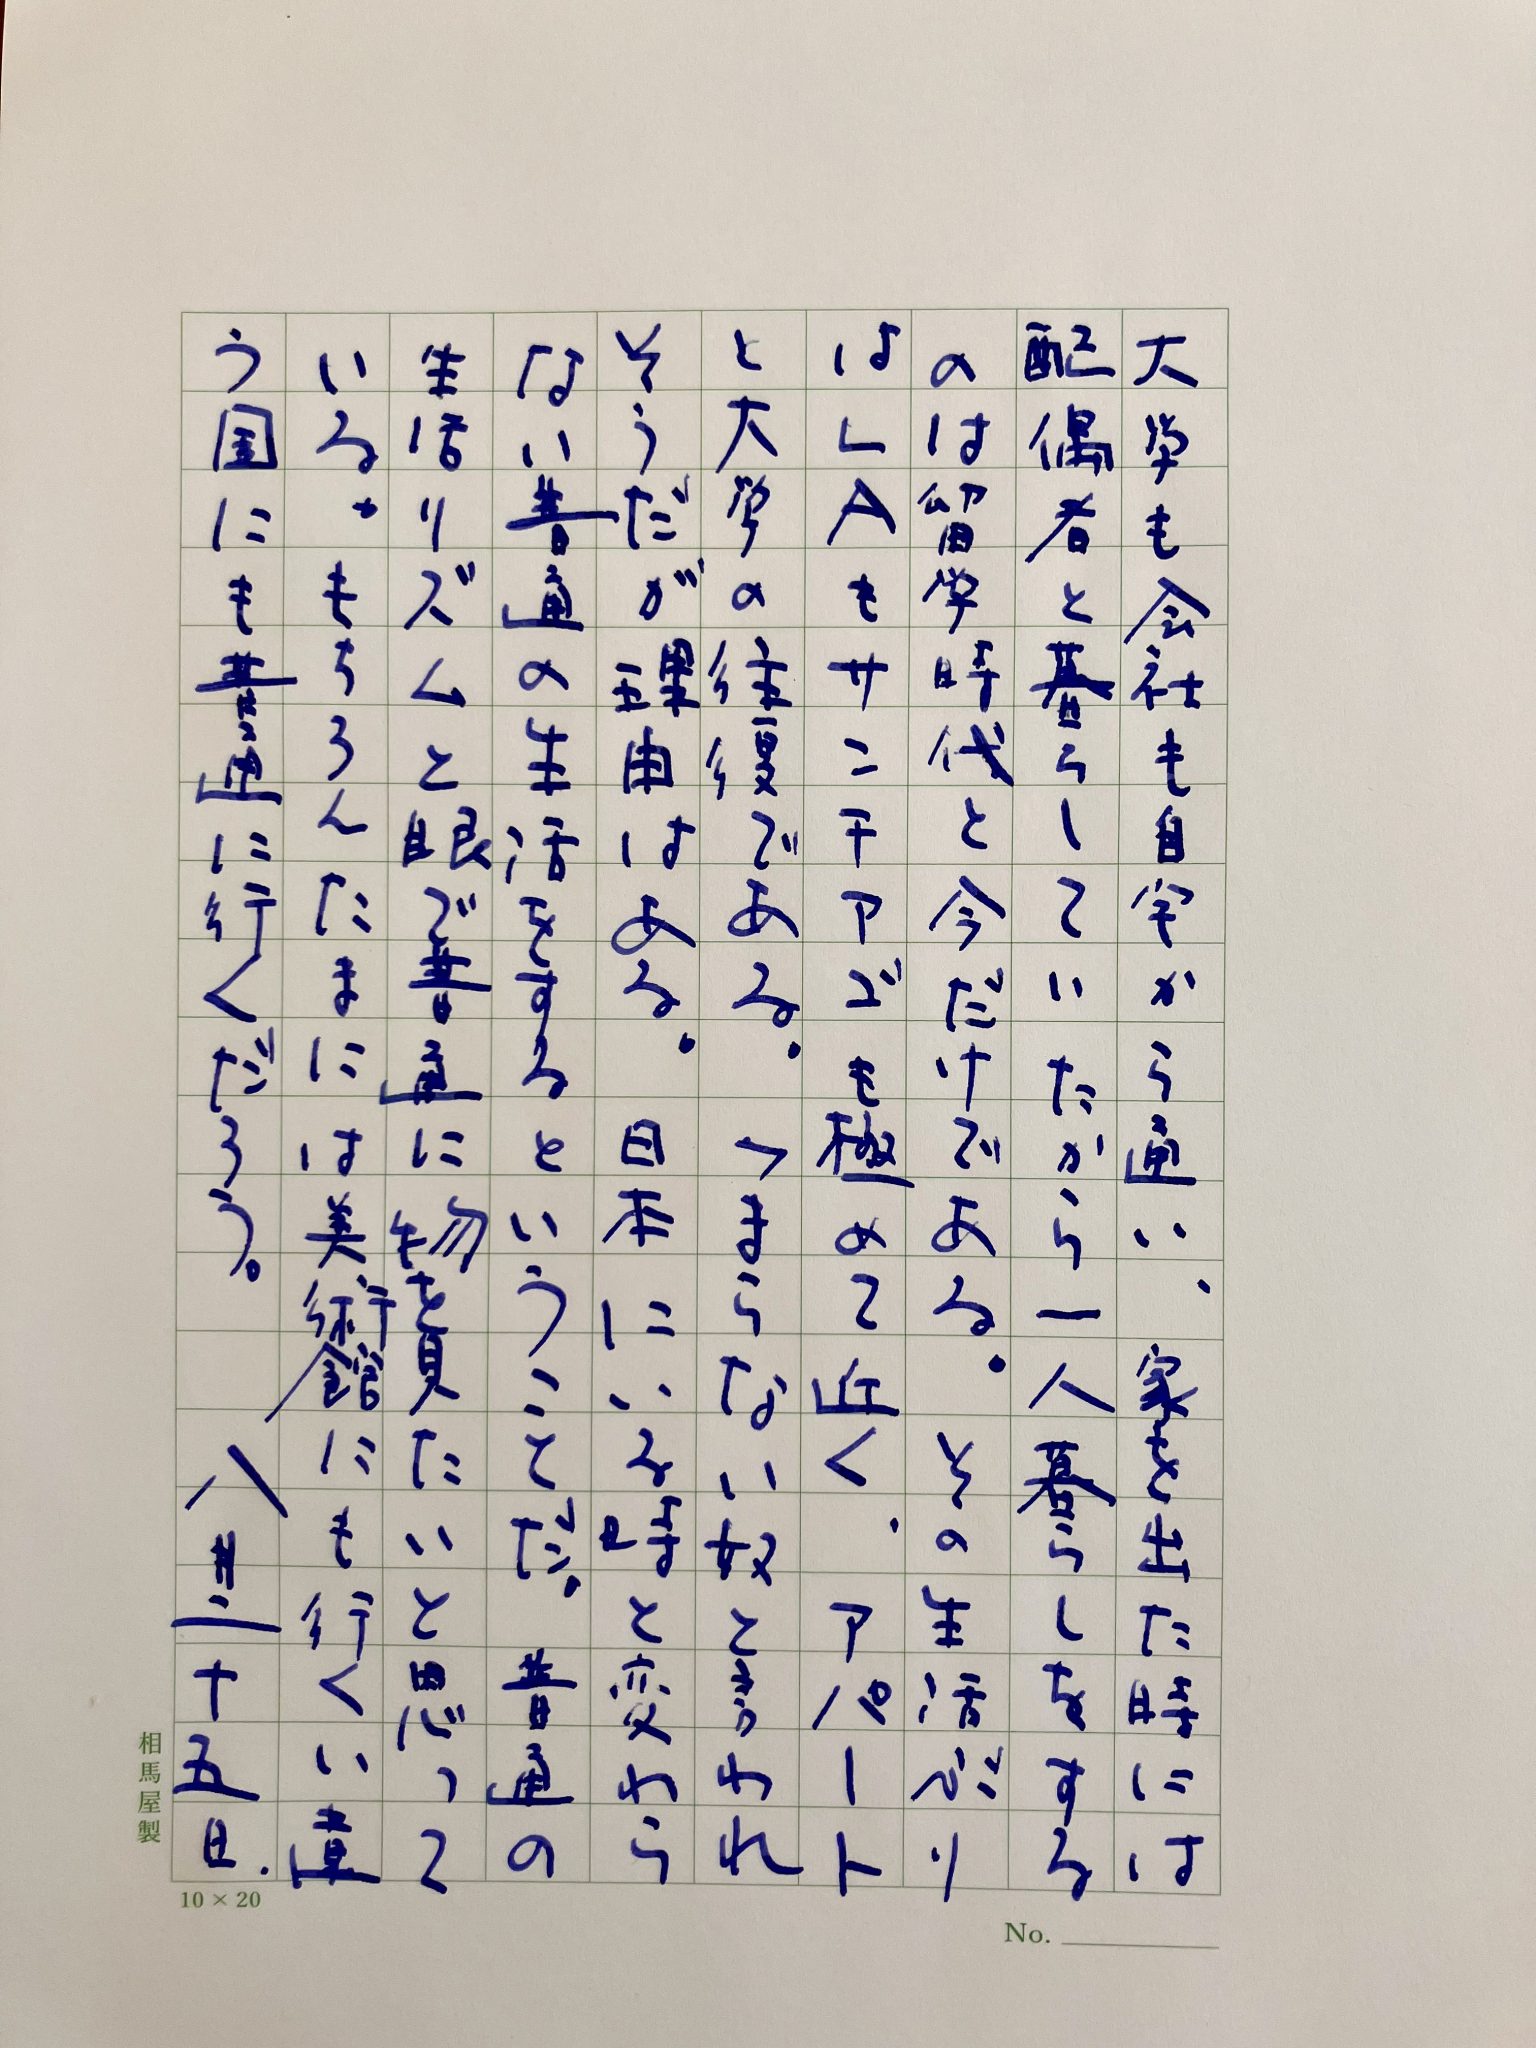 大学も会社も自宅から通い、家を出た時には
配偶者と暮らしていたから一人暮らしをする
のは留学時代と今だけである。その生活ぶり
はLAもサンチアゴも極めて近く、アパート
と大学の往復である。つまらない奴と言われ
そうだが理由はある。日本にいる時と変わら
ない普通の生活をするということだ。普通の
生活リズムと眼で普通に物を見たいと思って
いる。もちろんたまには美術館にも行くい違
う国にも普通に行くだろう。 八月二十五日.
相馬屋製
10×20
No.